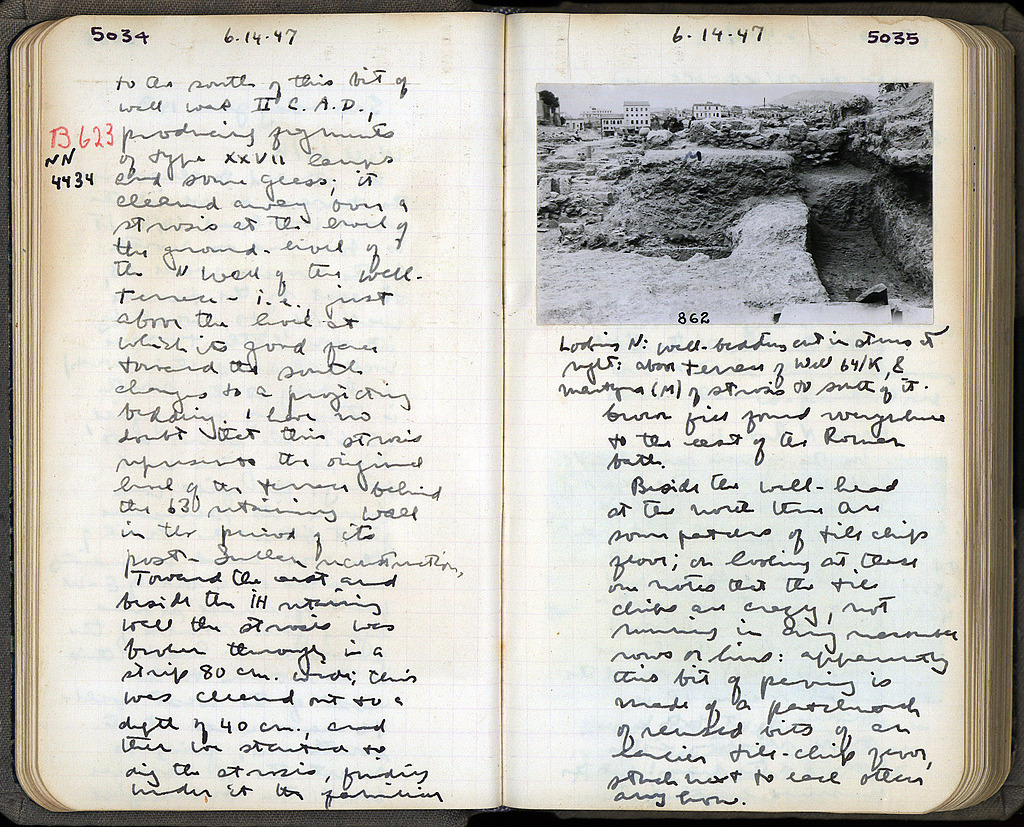 5034
6-14-47
to the south of this bit of
wall was II C. A.D.,
B 623
NN
4434
producing fragments
of type XXVII lamps
and some glass; it
cleaned away over a
strosis at the level of
the ground-level of
the N wall of the well-
terrace - i.e. just
above the level at
which its good face
toward the south
changes to a projecting
bedding. I have no
doubt that this strosis
represents the original
level of the terrace behind
the 630 retaining wall
in the period of its
post-Sullan reconstruction,
Toward the east and
beside the IH retaining
wall the strosis was
broken through in a
strip 80 cm. wide; this
was cleaned out to a
depth of 40 cm., and
then we started to
dig the strosis, finding
under it the familiar
6-14-47
5035
862
Looking N: wall-bedding cut in strosis at
right: above terrace of Well 64/K, &
martyra (M) of strosis to south of it.
brown fill found everywhere
to the east of the Roman
bath.
Beside the well-head
at the north there are
some patches of tile chip
floor; on looking at these
one notes that the tile
chips are crazy, not
running in any reasonable
rows or lines: apparently
this bit of paving is
made of a patchwork
of reused bits of an
earlier tile-chip floor,
stuck next to each other
anyhow.